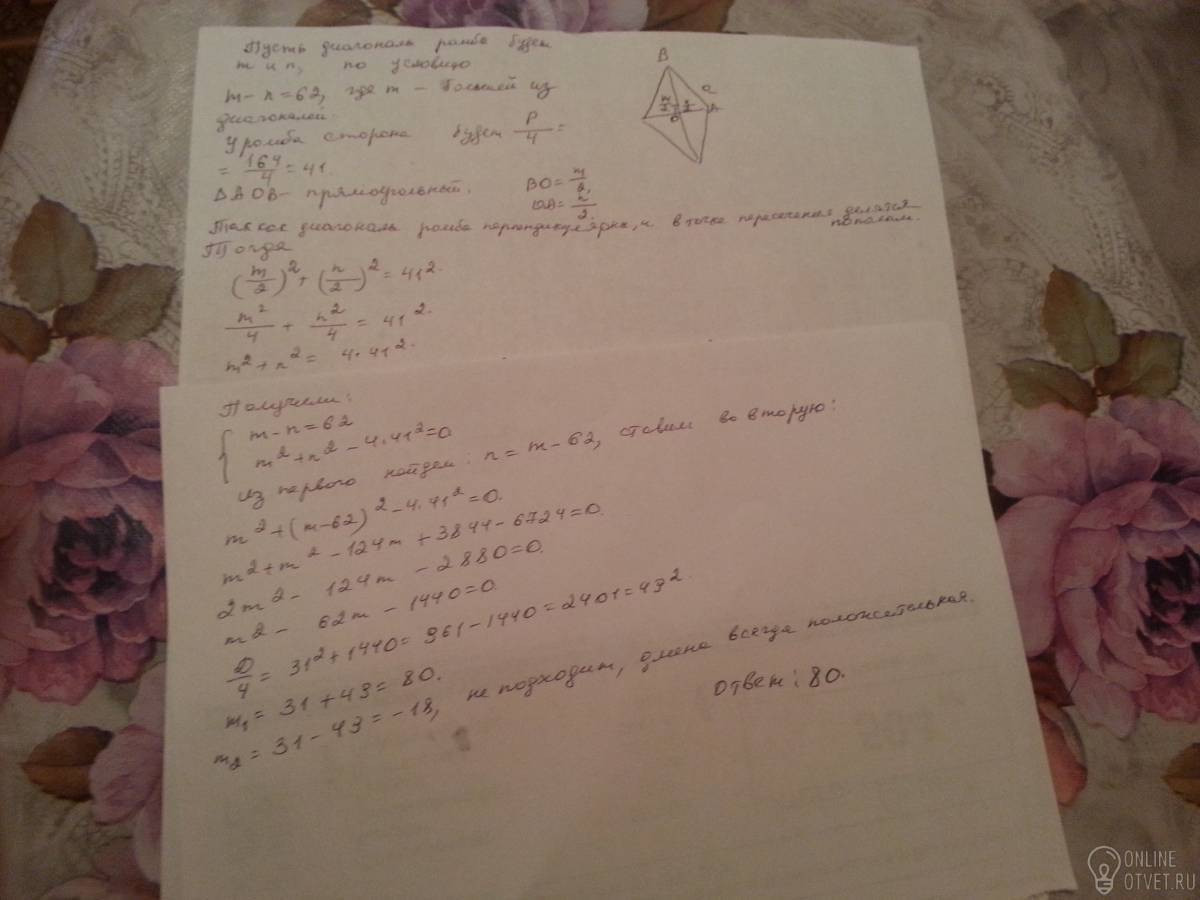 Пусть диагональ ромба будет
m и n, по условию
m - n = 62, где m - большей из
диагоналей.
У ромба сторона будет P/4 =
= 164/4 = 41.
ΔAOB - прямоугольный. BO = m/2,
OA = n/2.
Так как диагональ ромба перпендикулярны, и в точке пересечения делятся
пополам.
Тогда
(m/2)² + (n/2)² = 41².
m²/4 + n²/4 = 41².
m² + n² = 4·41².
B
a
m/2
n/2
A
O
Получили:
m - n = 62
m² + n² - 4·41² = 0
из первого найдем: n = m - 62, ставим во вторую:
m² + (m - 62)² - 4·41² = 0.
m² + m² - 124m + 3844 - 6724 = 0.
2m² - 124m - 2880 = 0.
m² - 62m - 1440 = 0.
D/4 = 31² + 1440 = 961 - 1440 = 2401 = 49².
m₁ = 31 + 49 = 80.
m₂ = 31 - 49 = -18, не подходит, длина всегда положительная.
Ответ: 80.
ONLINE
OTVET.RU